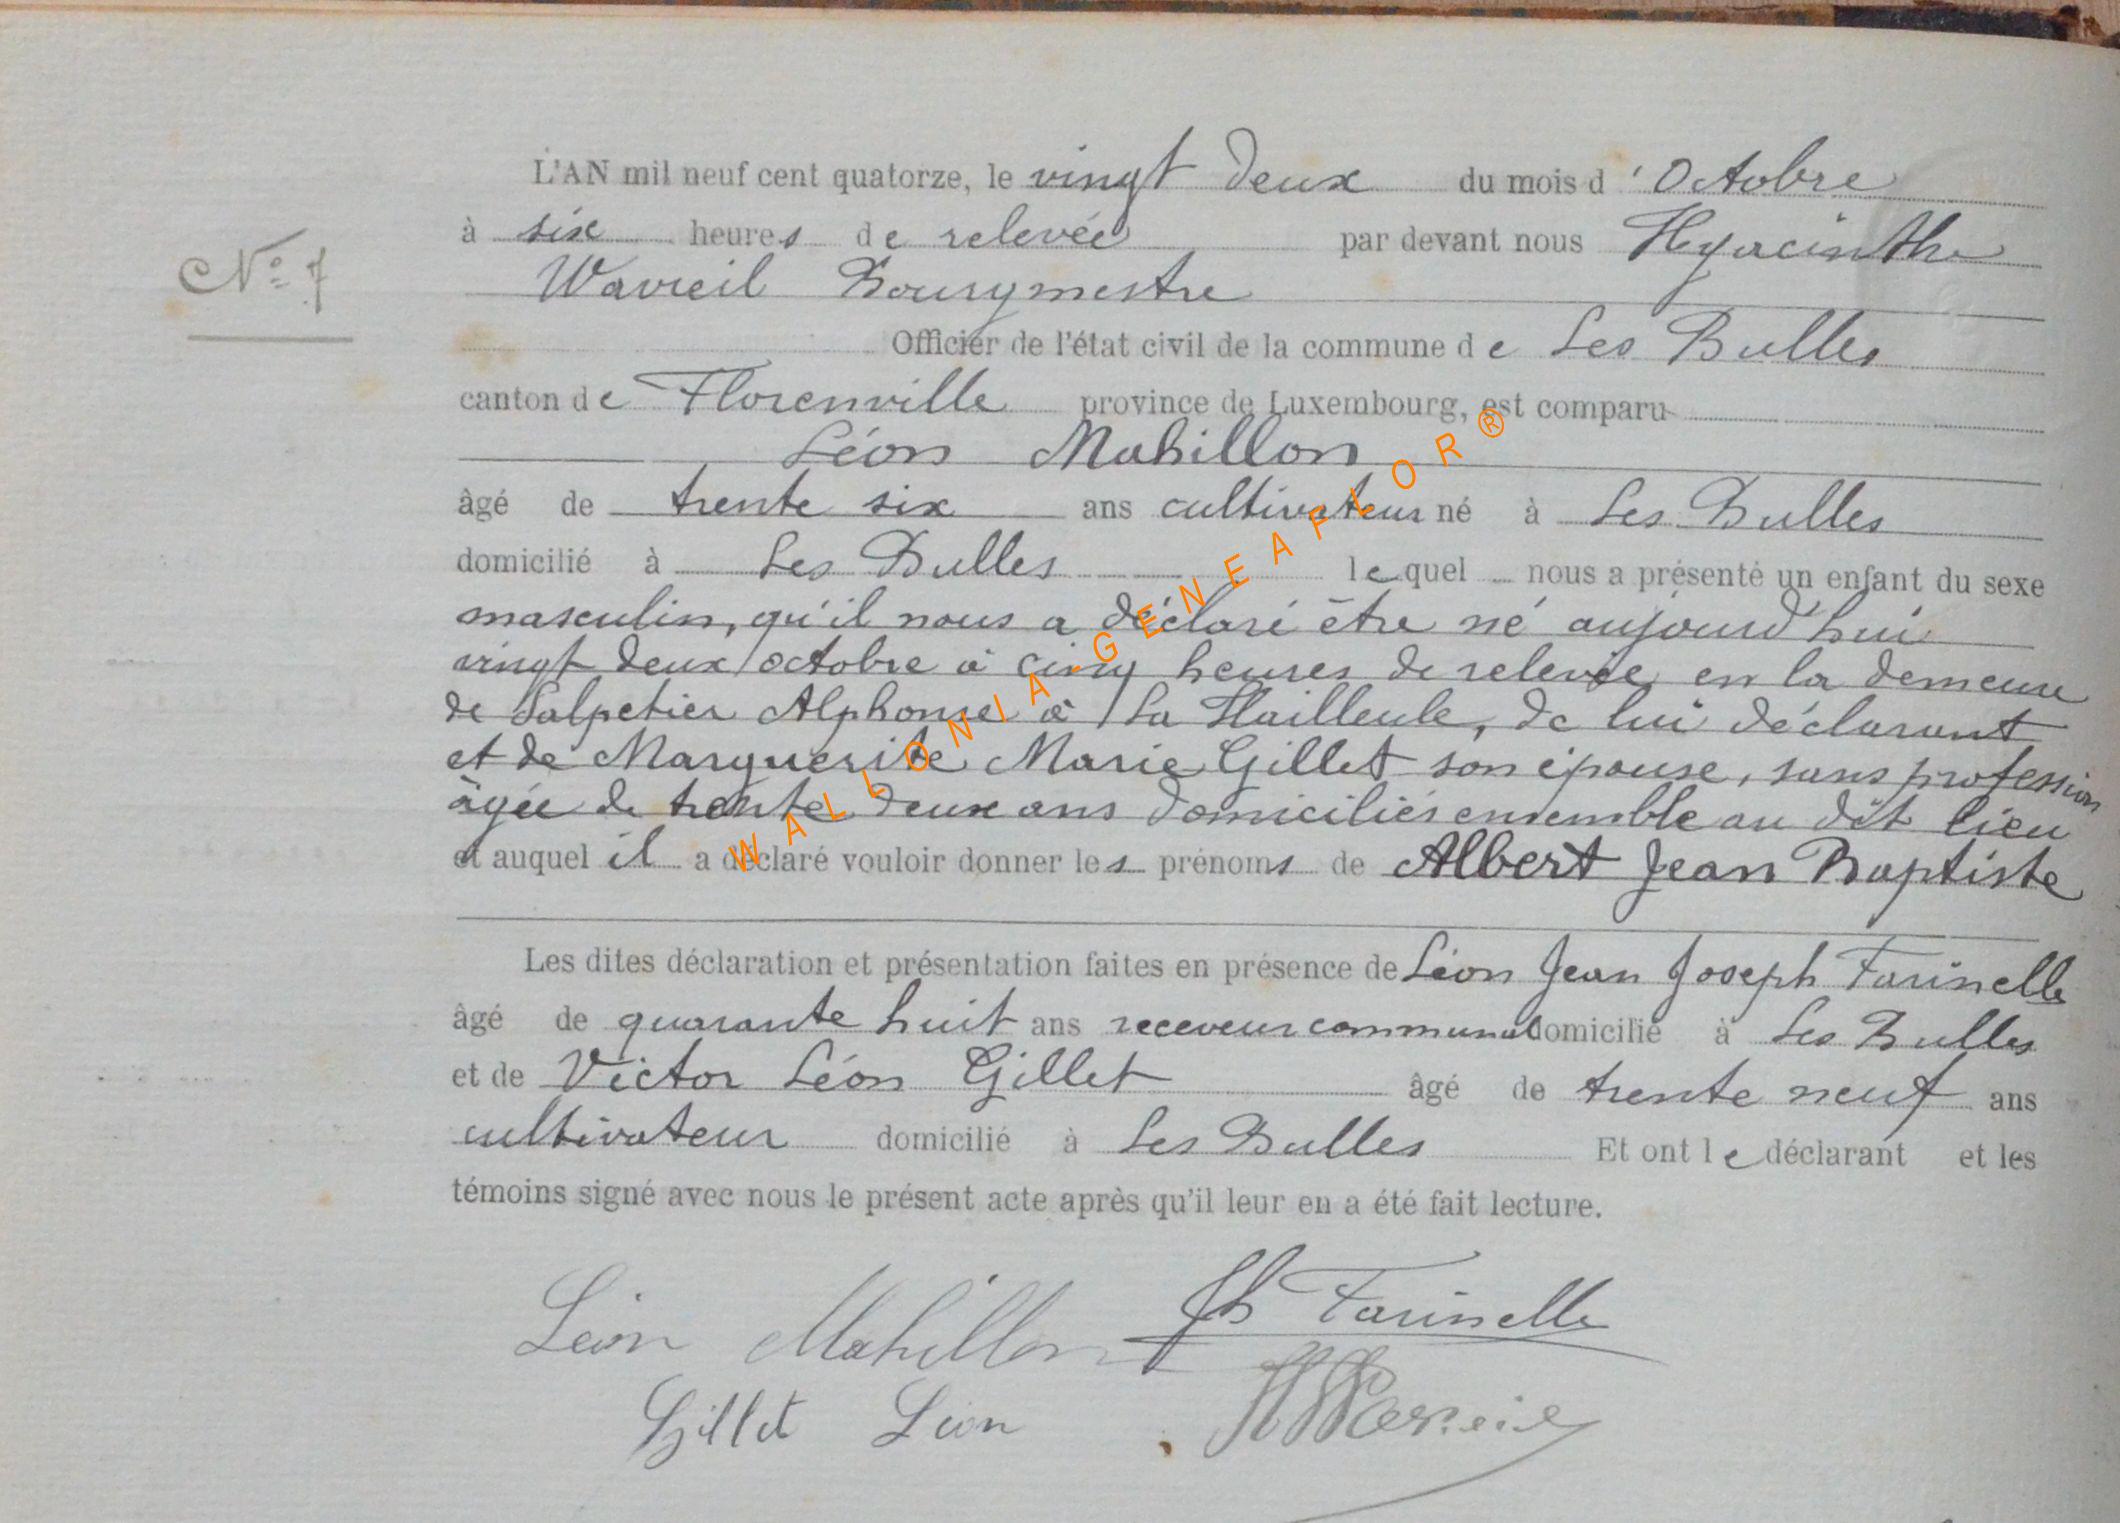 L'AN mil neuf cent quatorze, le vingt deux du mois d'Octobre
à six heures de relevée par devant nous Hyacinthe
Nº 7
Wavreil Bourgmestre
Officier de l'état civil de la commune de Les Bulles
canton de Florenville province de Luxembourg, est comparu
Léon Mahillon
âgé de trente six ans cultivateur né à Les Bulles
domicilié à Les Bulles lequel nous a présenté un enfant du sexe
masculin, qu'il nous a déclaré être né aujourd'hui
vingt deux octobre à cinq heures de relevée, en la demeure
de Salpetier Alphonse à La Hailleule, de lui déclarant
et de Marguerite Marie Gillet son épouse, sans profession
âgée de trente deux ans domiciliés ensemble au dit lieu
et auquel il a déclaré vouloir donner les prénoms de Albert Jean Baptiste
WALLONIA-GENEAFLOR®
Les dites déclaration et présentation faites en présence de Léon Jean Joseph Farinelle
âgé de quarante huit ans receveur communal domicilié à Les Bulles
et de Victor Léon Gillet âgé de trente neuf ans
cultivateur domicilié à Les Bulles Et ont le déclarant et les
témoins signé avec nous le présent acte après qu'il leur en a été fait lecture.
Léon Mahillon Jh Farinelle
Gillet Léon